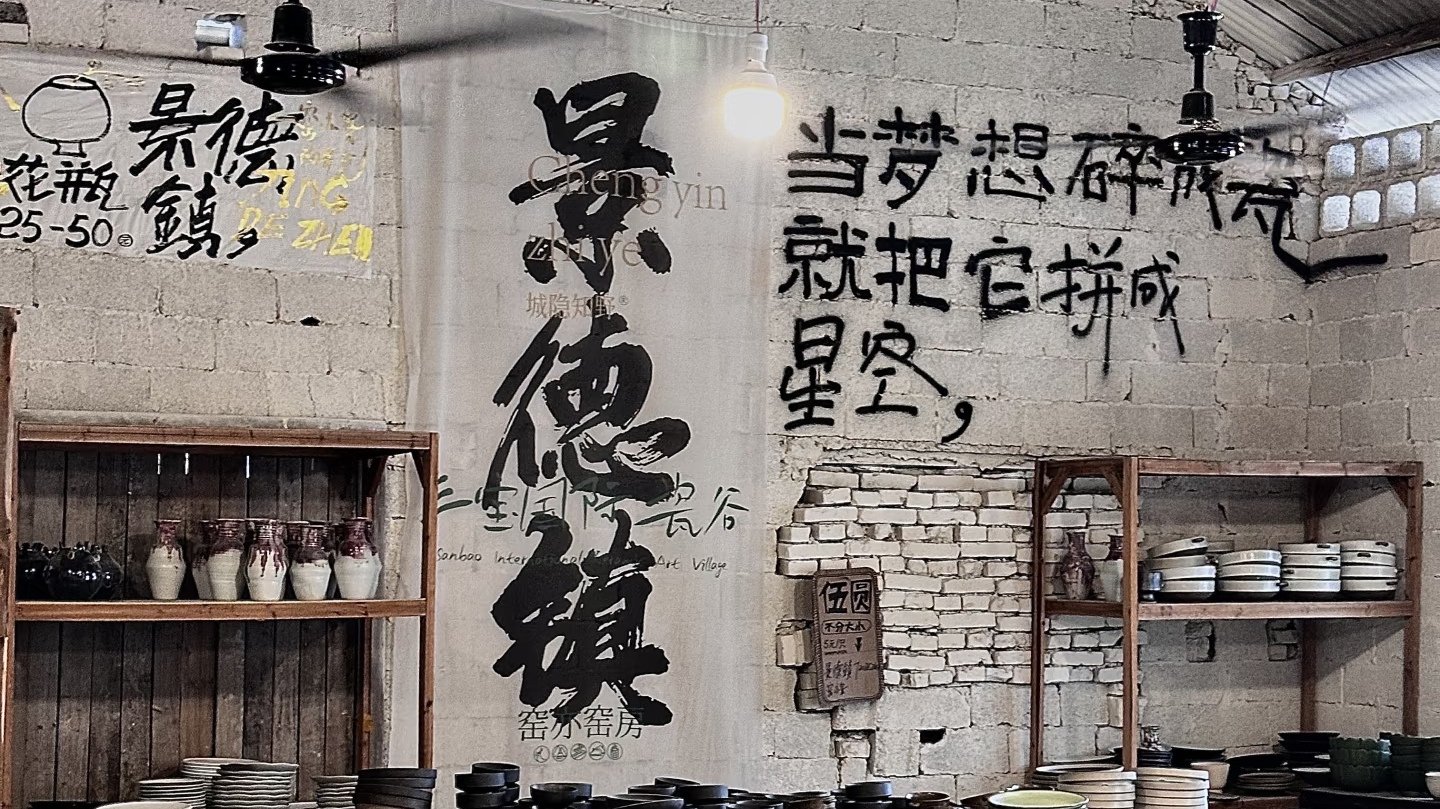 景德
鎮,
花瓶
25-50元
JING
DE ZHEN
景德镇
Cheng yin
zhi ye
城隐知野®
三宝国际瓷谷
Sanbao International Art Village
窑亦窑房
当梦想碎成瓦
就把它拼成
星空,
伍圆
不分大小
5元/只
景德鎮